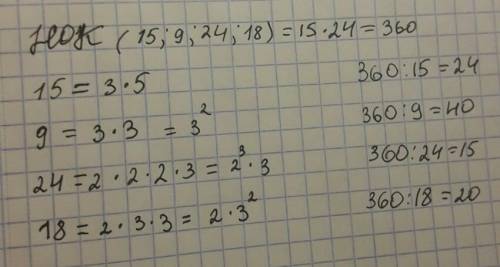 НОК (15; 9; 24; 18) = 15·24 = 360
15 = 3·5
9 = 3·3 = 3²
24 = 2·2·2·3 = 2³·3
18 = 2·3·3 = 2·3²
360:15 = 24
360:9 = 40
360:24 = 15
360:18 = 20